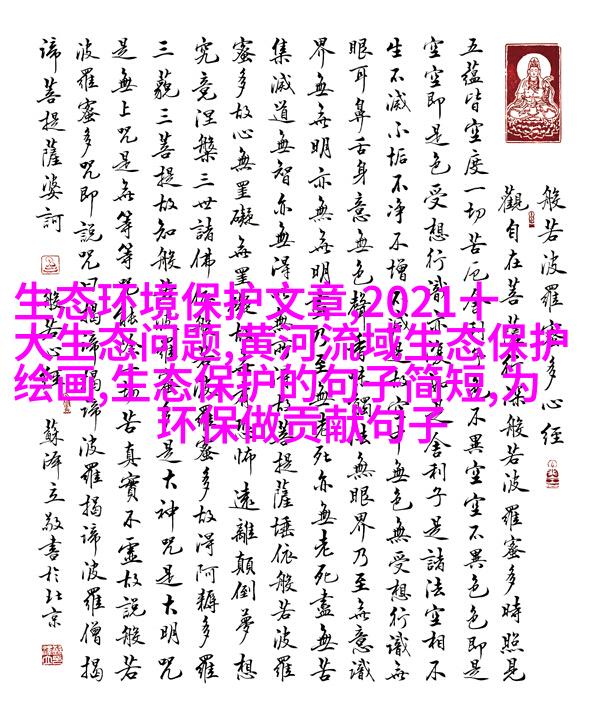 生态环境保护文章,2021十
大生态问题,黄河流域生态保护
绘画,生态保护的句子简短,为
环保做贡献句子
般若波羅蜜多心經
觀自在菩薩行深般若波羅蜜多時照見
五蘊皆空度一切苦厄舍利子色不異空空不異色色即是
空空即是色受想行識亦復如是舍利子是諸法空相不
生不滅不垢不净不增不減是故空中無色無受想行識無
眼耳鼻舌身意無色聲香味觸法無眼界乃至無意識
界無無明亦無無明盡乃至無老死亦無老死盡無苦
集滅道無智亦無得以無所得故菩提薩埵依般若波羅
蜜多故心無罣礙無罣礙故無有恐怖遠離顛倒夢想
究竟涅槃三世諸佛依般若波羅蜜多故得阿耨多羅
三藐三菩提故知般若波羅蜜多是大神咒是大明咒
是無上咒是無等等咒能除一切苦真實不虛故説般若
波羅蜜多咒即説咒曰揭諦揭諦波羅揭諦波羅僧揭
諦菩提薩婆訶
般若心經 蘇澤立敬書於北京